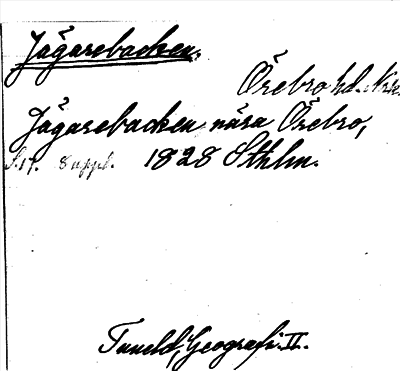 Jägarebacken.
Örebro hd. Nke.
Jägarebacken nära Örebro,
S. 17. Suppl. 1828 Sthlm.
Tuneld, Geografi II.